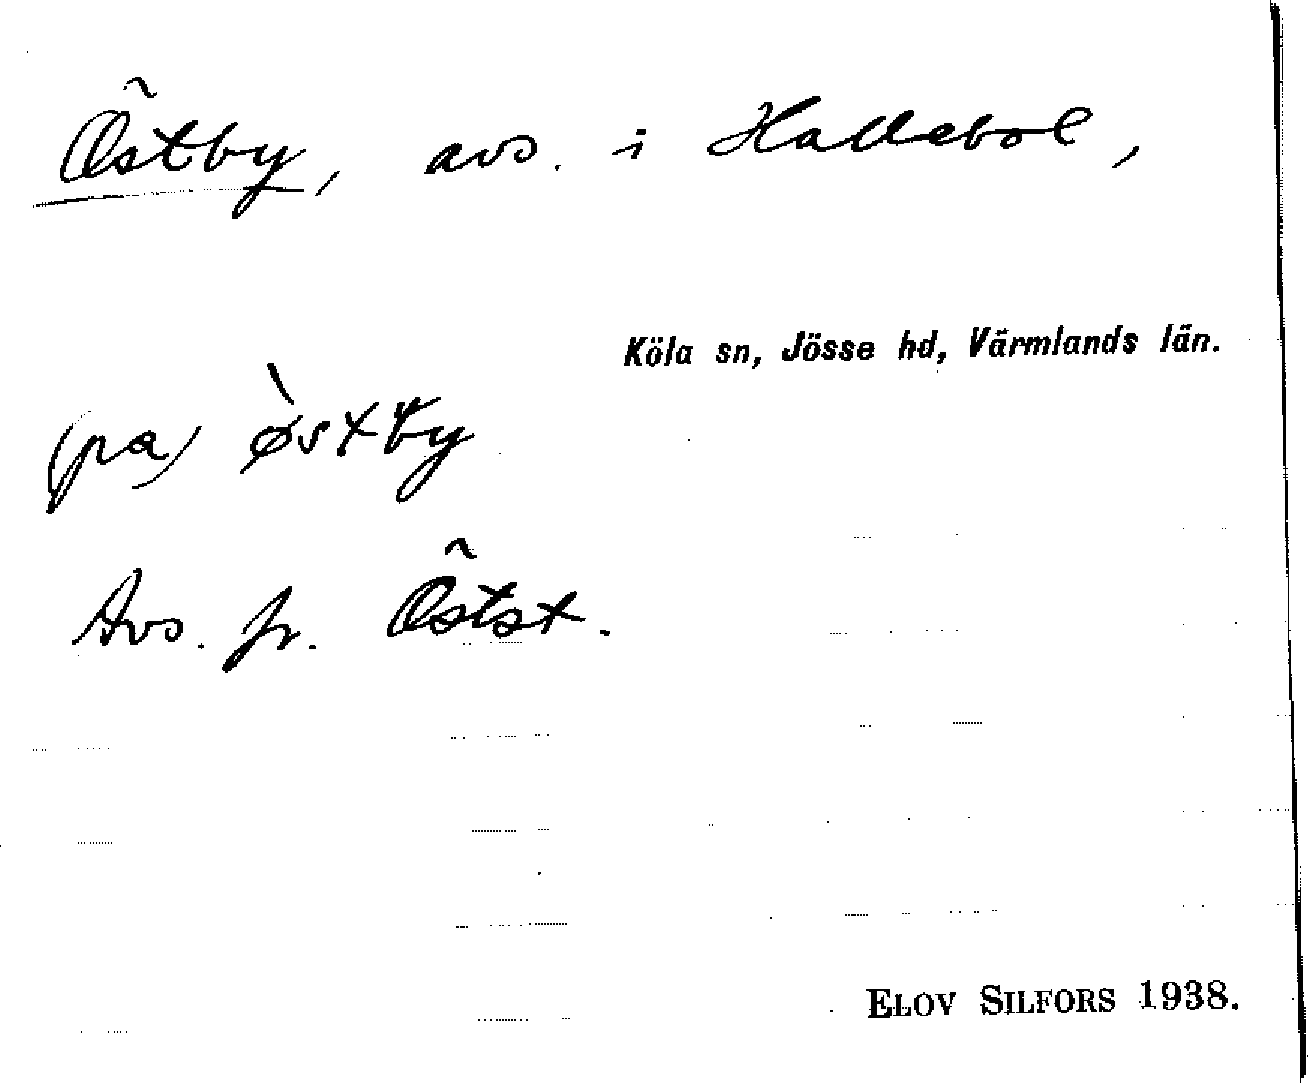 Östby, avs. i Hallebol,
Köla sn, Jösse hd, Värmlands län.
(pa) østby
Avs. fr. Östst.
ELOV SILFORS 1938.